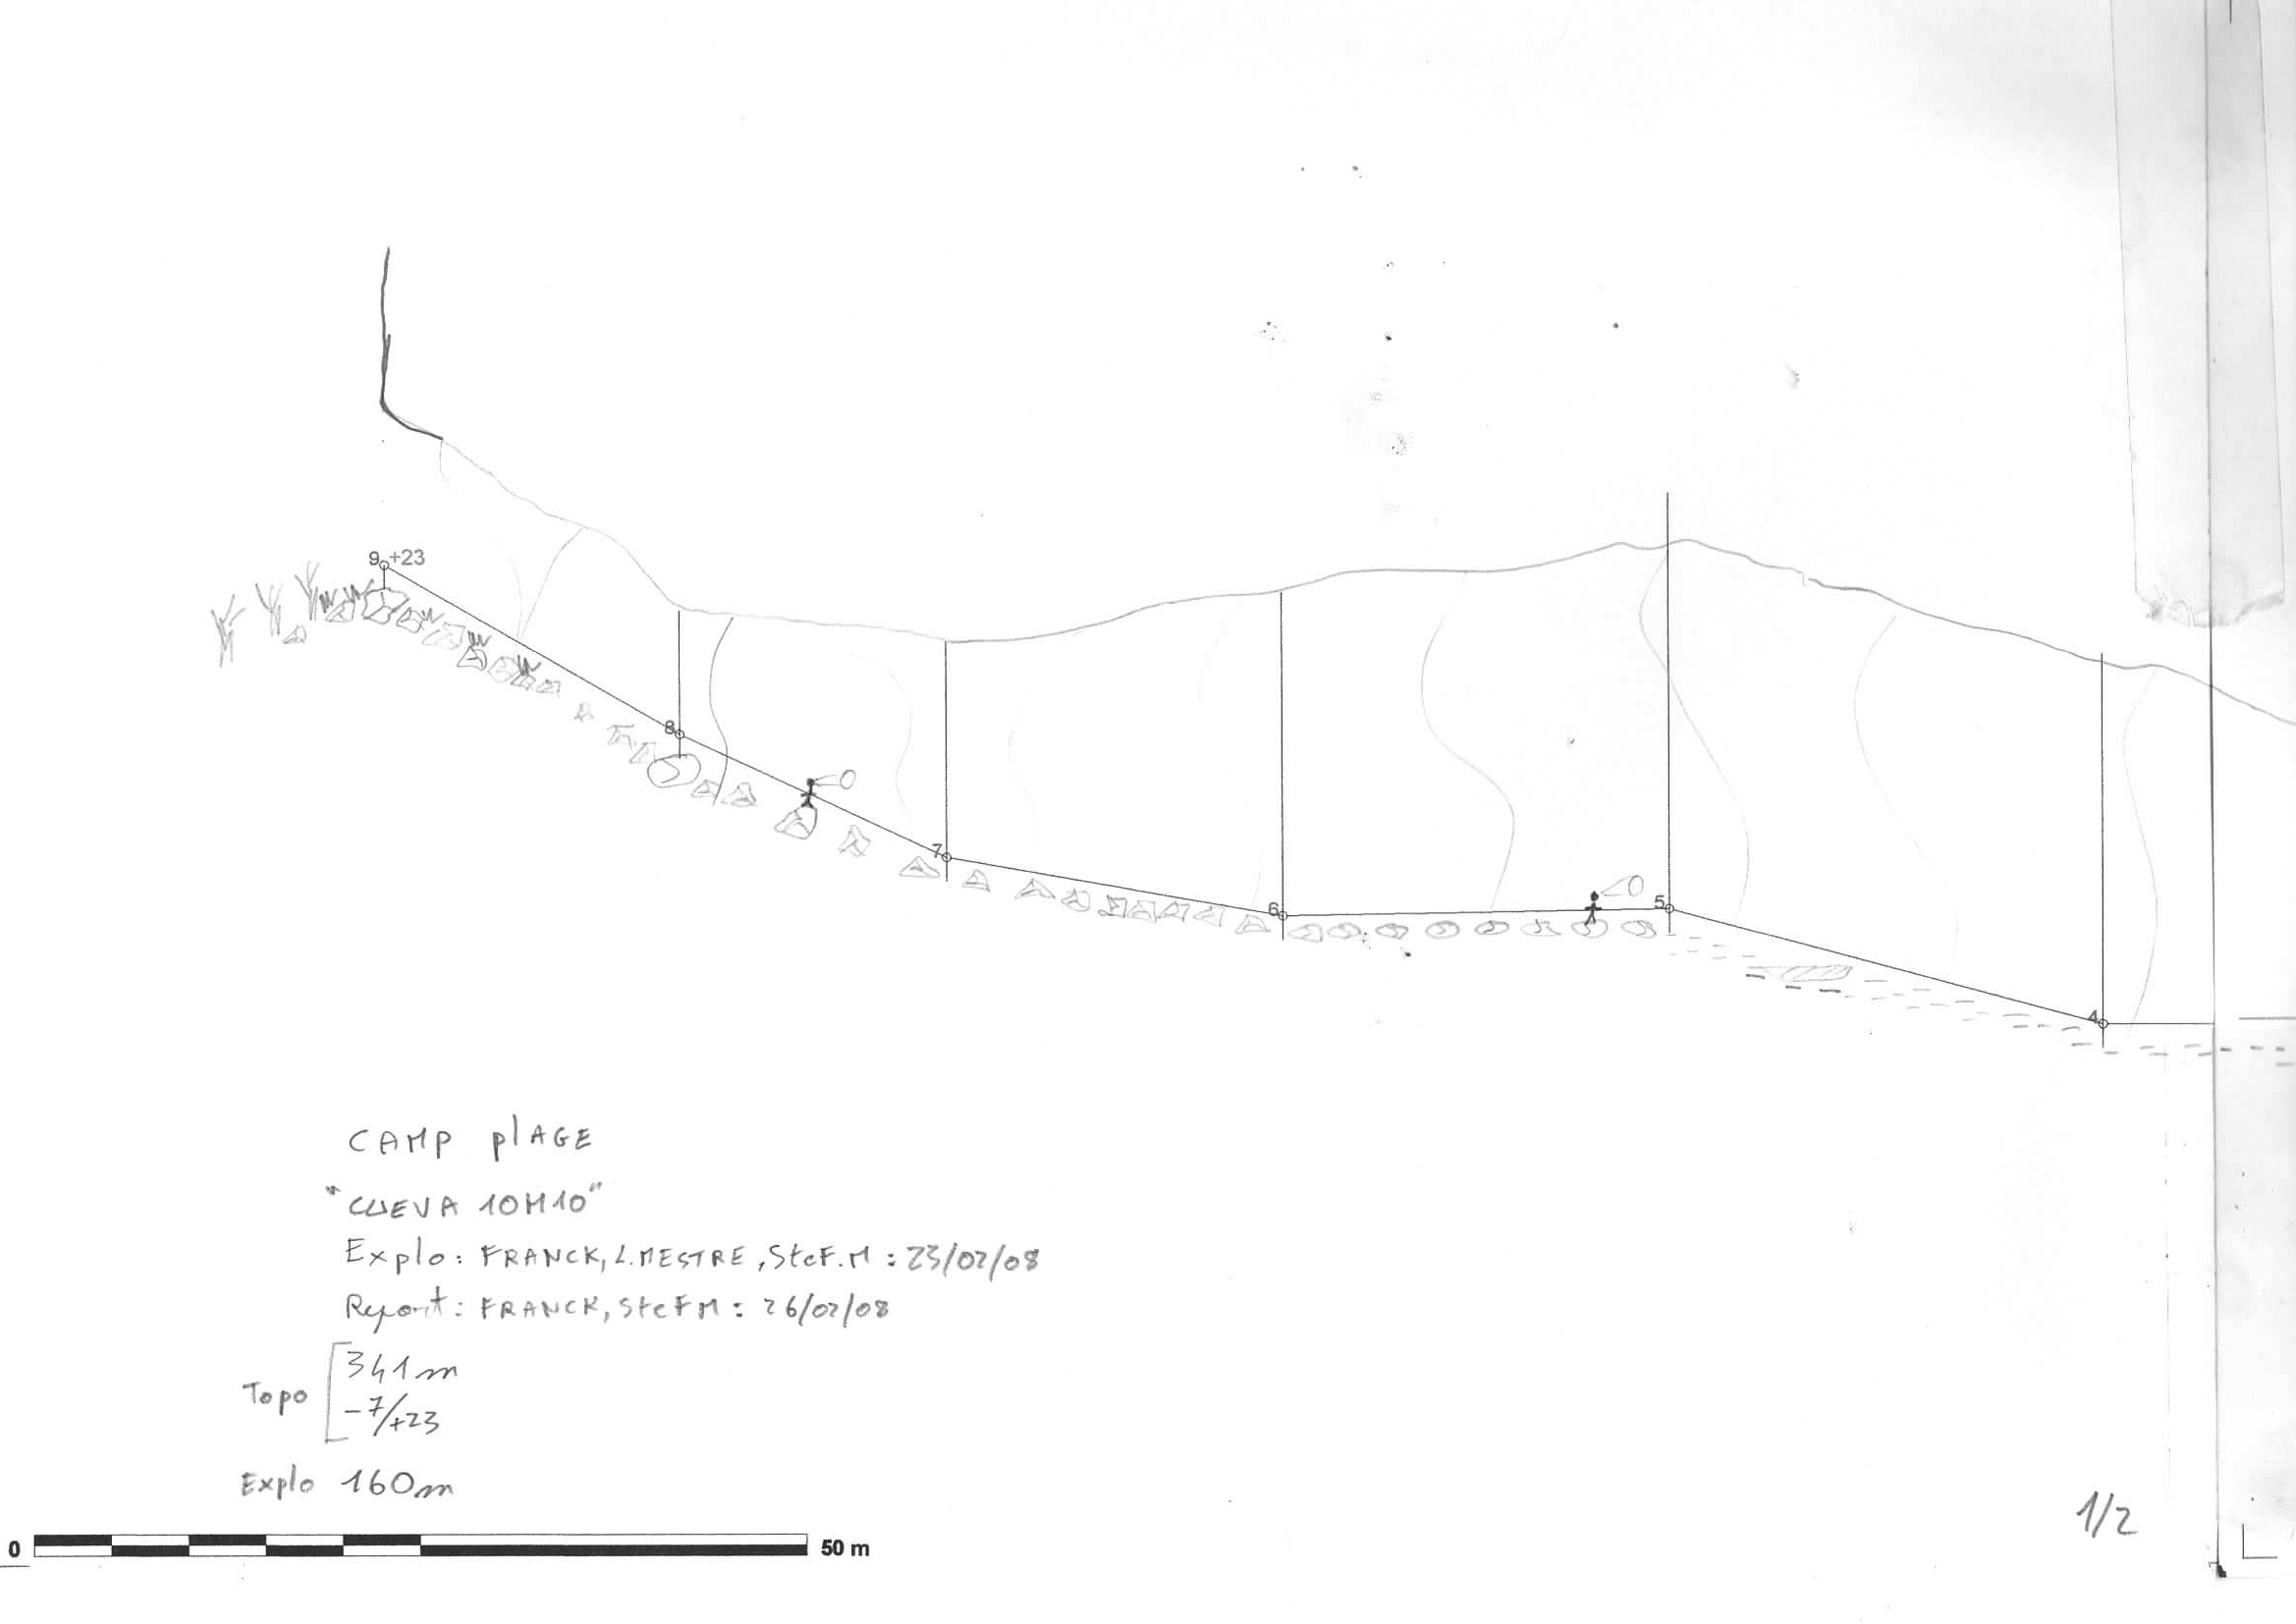 9 +23
8
7
6
5
4
CAMP PLAGE
"CUEVA 10H10"
Explo: FRANCK, L.MESTRE, SteF.M : 23/02/08
Report: FRANCK, SteFM : 26/02/08
Topo [341m
-7/+23
Explo 160m
0 50 m
1/2